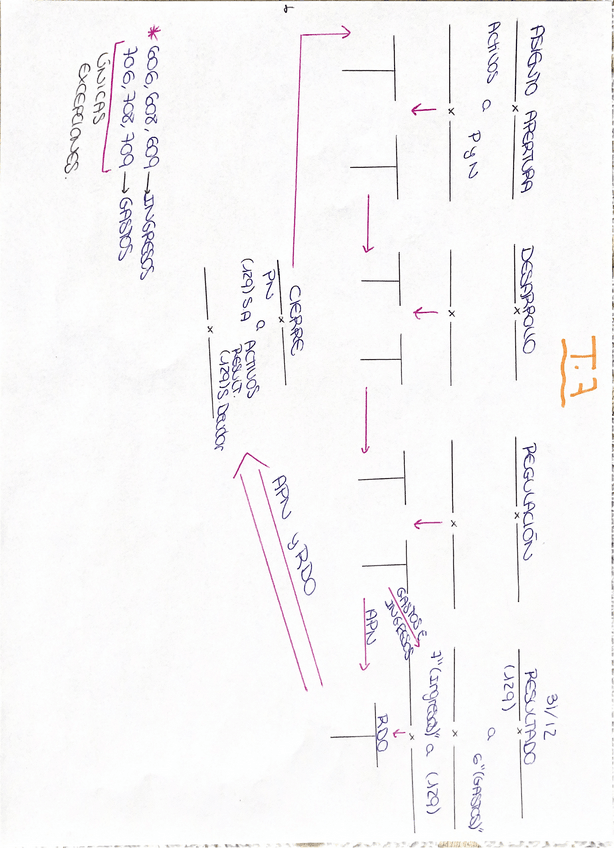 T.7
ASIENTO APERTURA
x
x
ACTIVOS a P y N
DESARROLLO
x
x
REGULACIÓN
x
x
31/12
RESULTADO
x
(129)
a 6"(GASTOS)"
x
7"(Ingresos)" a (129)
x
GASTOS E
INGRESOS
APN
RDO
APN y RDO
CIERRE
x
PN a ACTIVOS
(129) S A RESULT.
(129) S Deudor
x
* 606, 608, 609 → INGRESOS
706, 708, 709 → GASTOS
ÚNICAS
EXCEPCIONES.